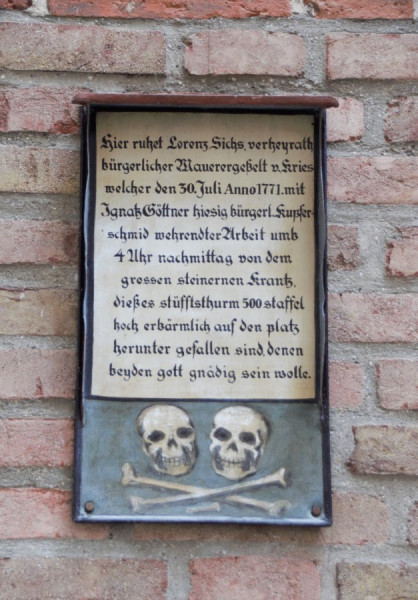 Hier ruhet Lorenz Sichs, verheyrath
bürgerlicher Mauerergeßelt v. Kries
welcher den 30. Juli Anno 1771. mit
Ignatz Göttner hiesig bürgerl. Kupfer-
schmid wehrendter Arbeit umb
4 Uhr nachmittag von dem
grossen steinernen Krantz,
dießes stüfftsthurm 500 staffel
hoch erbärmlich auf den platz
herunter gefallen sind, denen
beyden gott gnädig sein wolle.